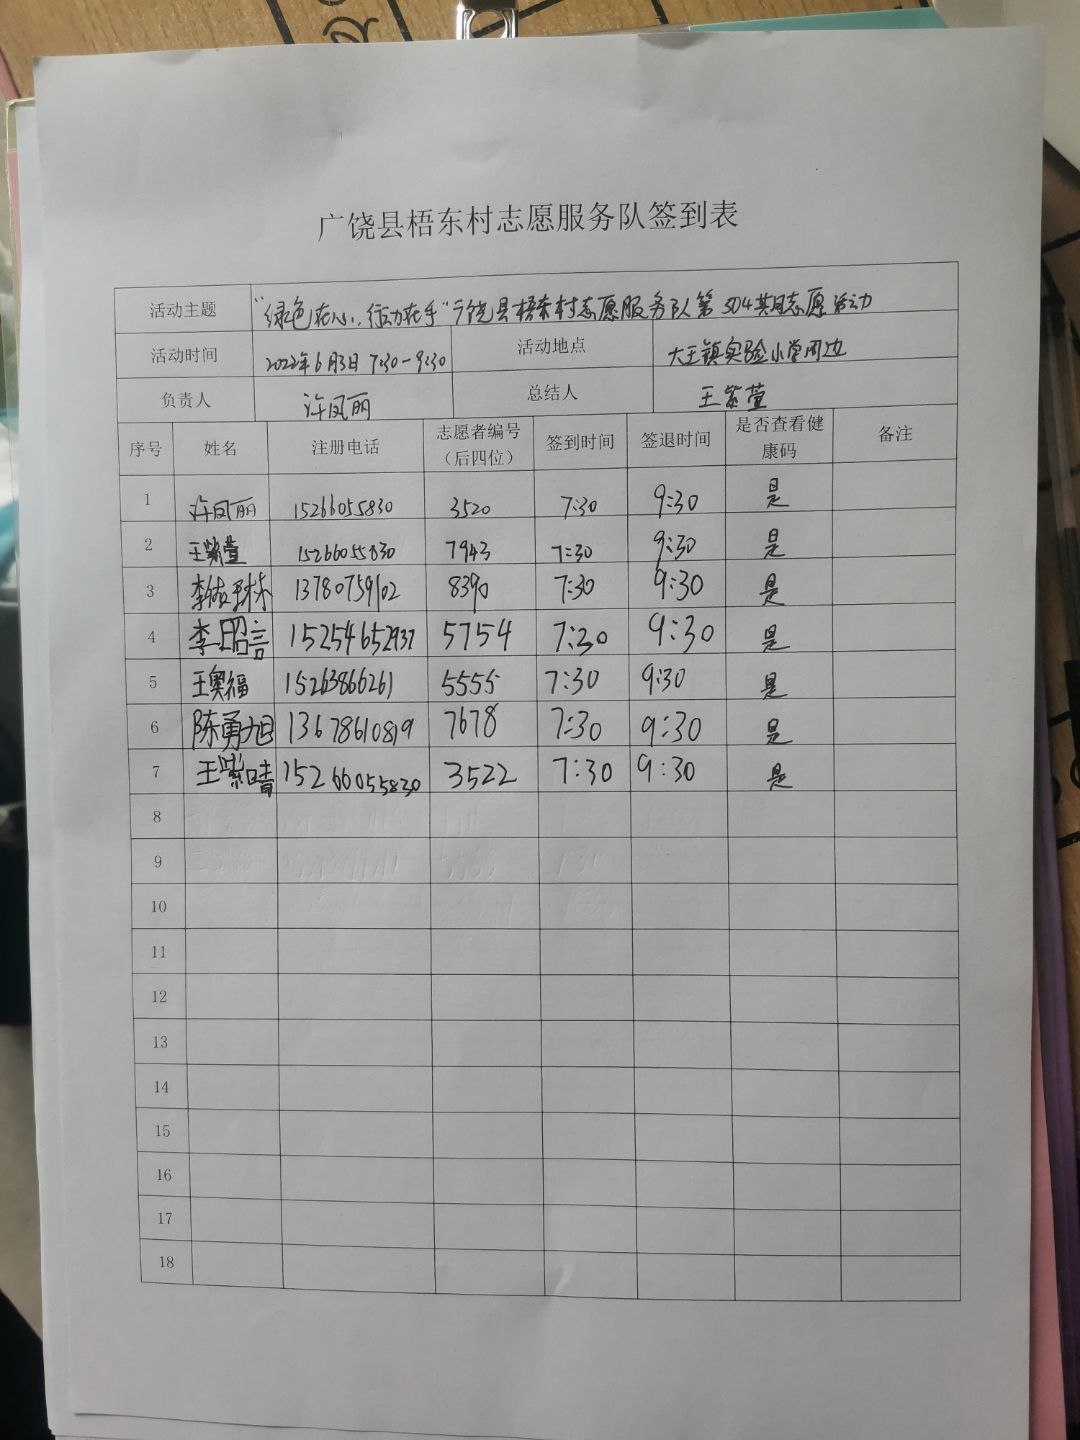 广饶县梧东村志愿服务队签到表
活动主题 "绿色在心,行动在手"广饶县梧东村志愿服务队第504其月志愿活动
活动时间 2022年6月3日 7:30-9:30 活动地点 大王镇实验小学周边
负责人 许凤丽 总结人 王紫萱
序号 姓名 注册电话 志愿者编号(后四位) 签到时间 签退时间 是否查看健康码 备注
1 许凤丽 15266055830 3520 7:30 9:30 是
2 王紫萱 15266055830 7943 7:30 9:30 是
3 13780759102 8390 7:30 9:30 是
4 李昭言 15254652937 5754 7:30 9:30 是
5 王奥福 15263866261 5555 7:30 9:30 是
6 陈勇旭 13678610819 7678 7:30 9:30 是
7 王紫晴 15266055830 3522 7:30 9:30 是
8
9
10
11
12
13
14
15
16
17
18